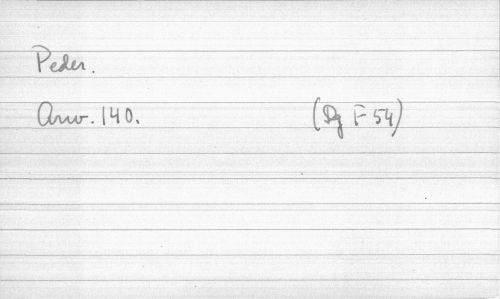 Peder.
Arw. 140. (Dg F 54)